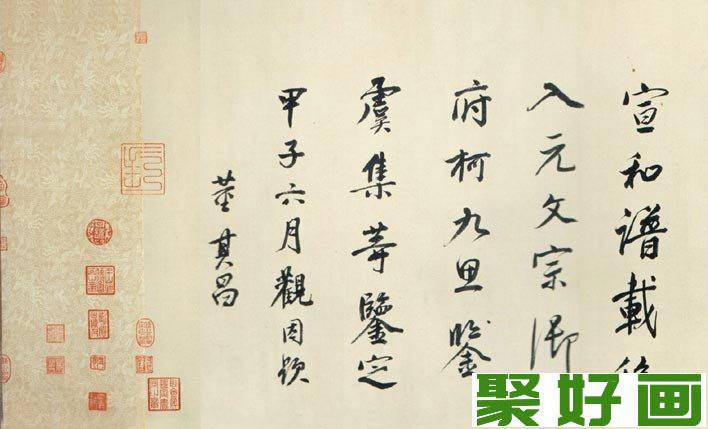 宣和譜載
入元文宗御
府柯九思鑒
虞集等鑒定
甲子六月觀因題
董其昌
聚好画